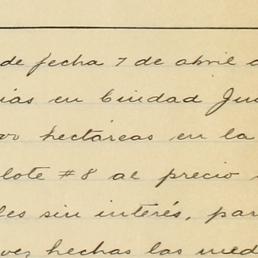 de fecha 7 de abril
en Ciudad
hectáreas en la
lote #8 al precio
sin interés,
hechas las